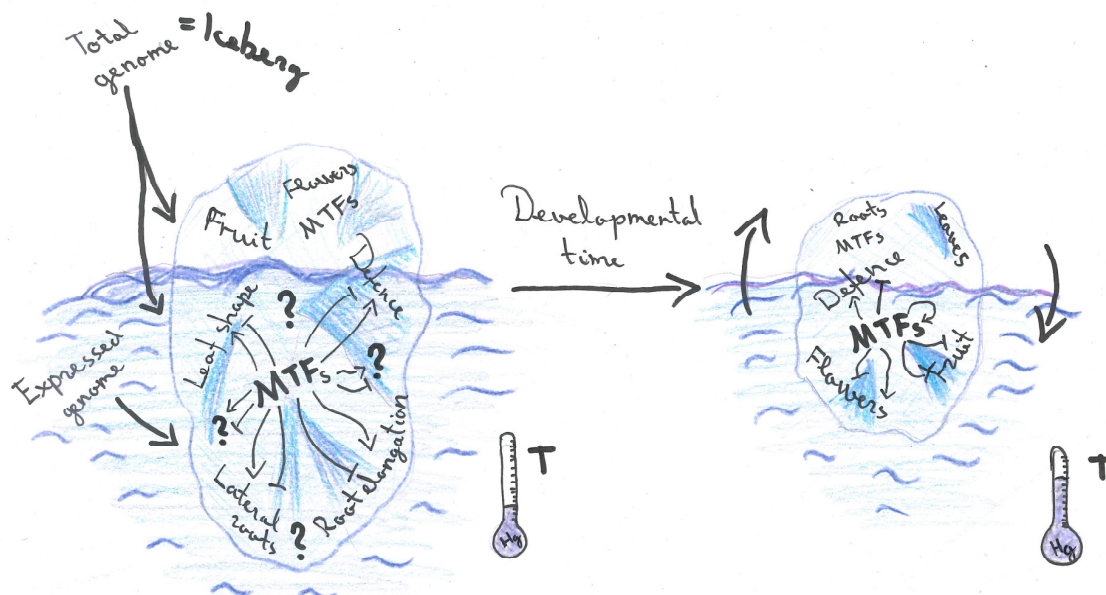 Total
genome
= Iceberg
Expressed
genome
Fruit
Flowers
MTFs
Defence
Leaf shape
?
MTFs
?
?
Lateral
roots
?
Root elongation
Hg
T
Developmental
time
Roots
MTFs
Leaves
Defence
MTFs
Flowers
Fruit
Hg
T